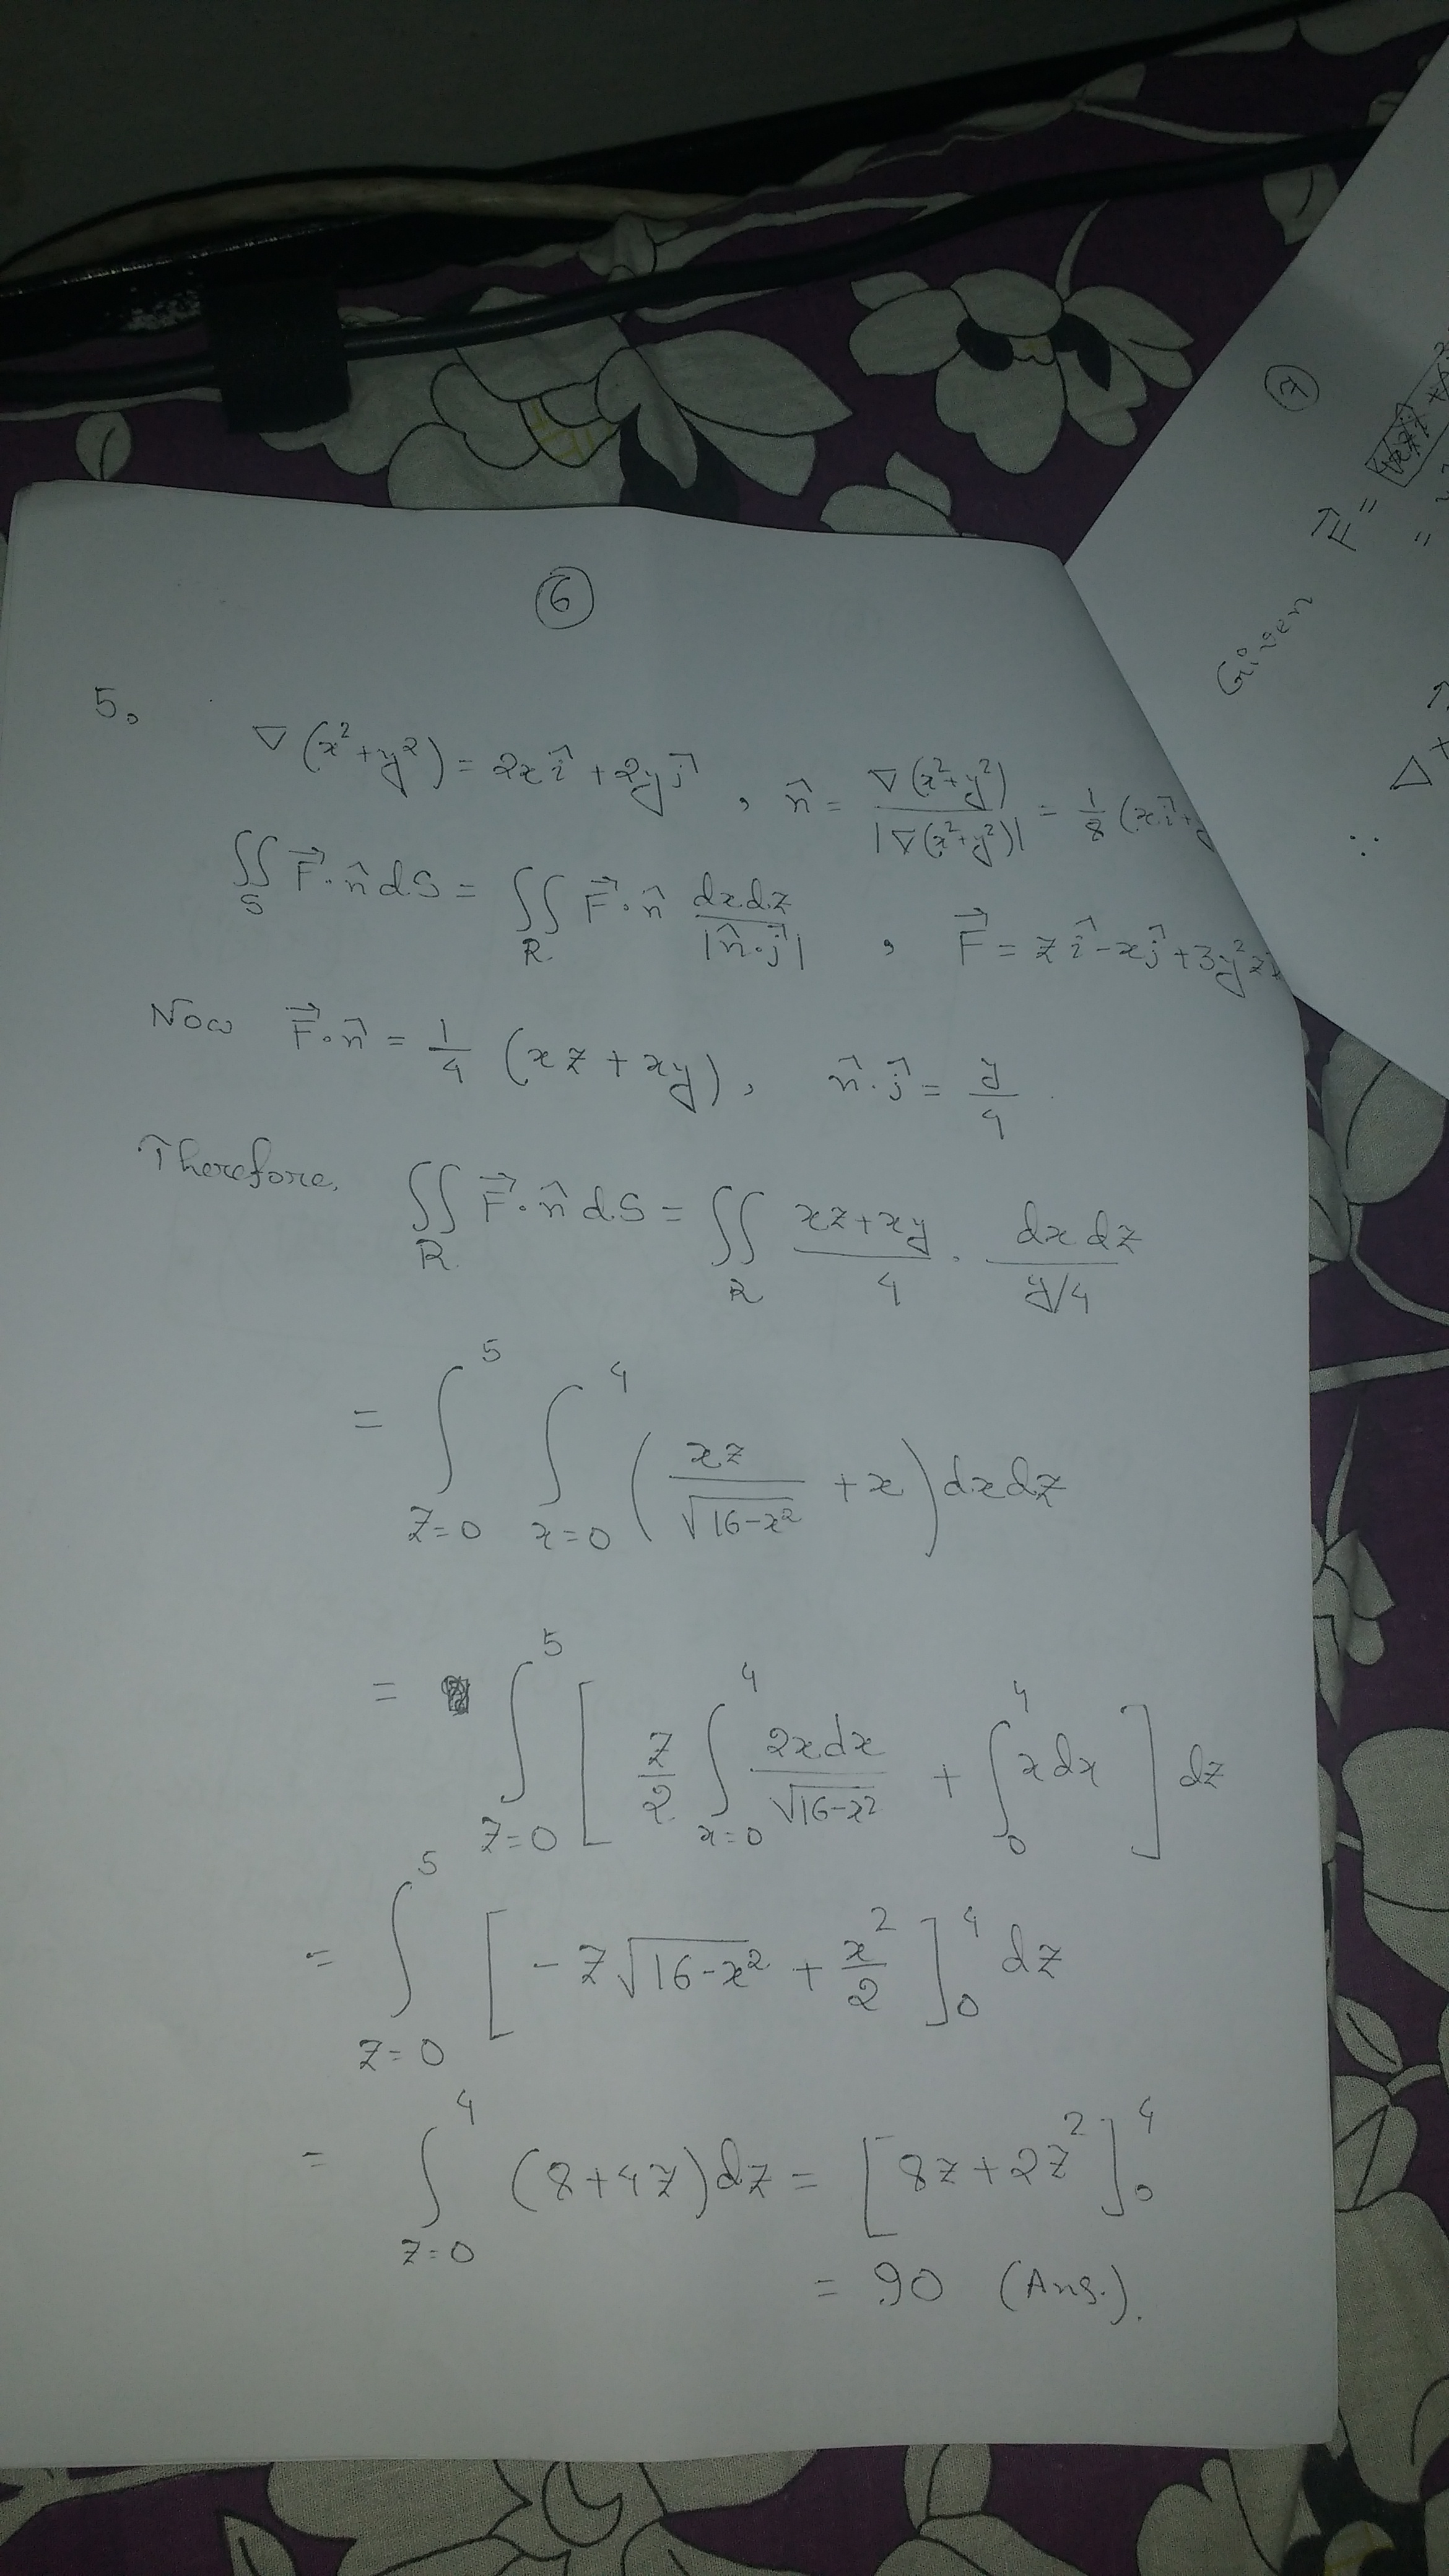 6
5.
∇(x²+y²) = 2x i⃗ + 2y j⃗ , n⃗ = ∇(x²+y²) / |∇(x²+y²)| = 1/8 (x i⃗ +
∬_S F⃗·n̂ dS = ∬_R F⃗·n̂ dx dz / |n̂·j⃗| , F⃗ = z i⃗ - x j⃗ + 3y²z
Now F⃗·n⃗ = 1/4 (xz + xy), n⃗·j⃗ = y/4
Therefore, ∬_R F⃗·n̂ dS = ∬_R (xz+xy)/4 · dx dz / (y/4)
= ∫_{z=0}^{5} ∫_{x=0}^{4} ( xz/√(16-x²) + x ) dx dz
= ∫_{z=0}^{5} [ z/2 ∫_{x=0}^{4} 2x dx/√(16-x²) + ∫_0^4 x dx ] dz
= ∫_{z=0}^{5} [ -z√(16-x²) + x²/2 ]_0^4 dz
= ∫_{z=0}^{4} (8+4z) dz = [8z + 2z²]_0^4
= 90 (Ans.).
7
Given
F⃗ =
=
∴